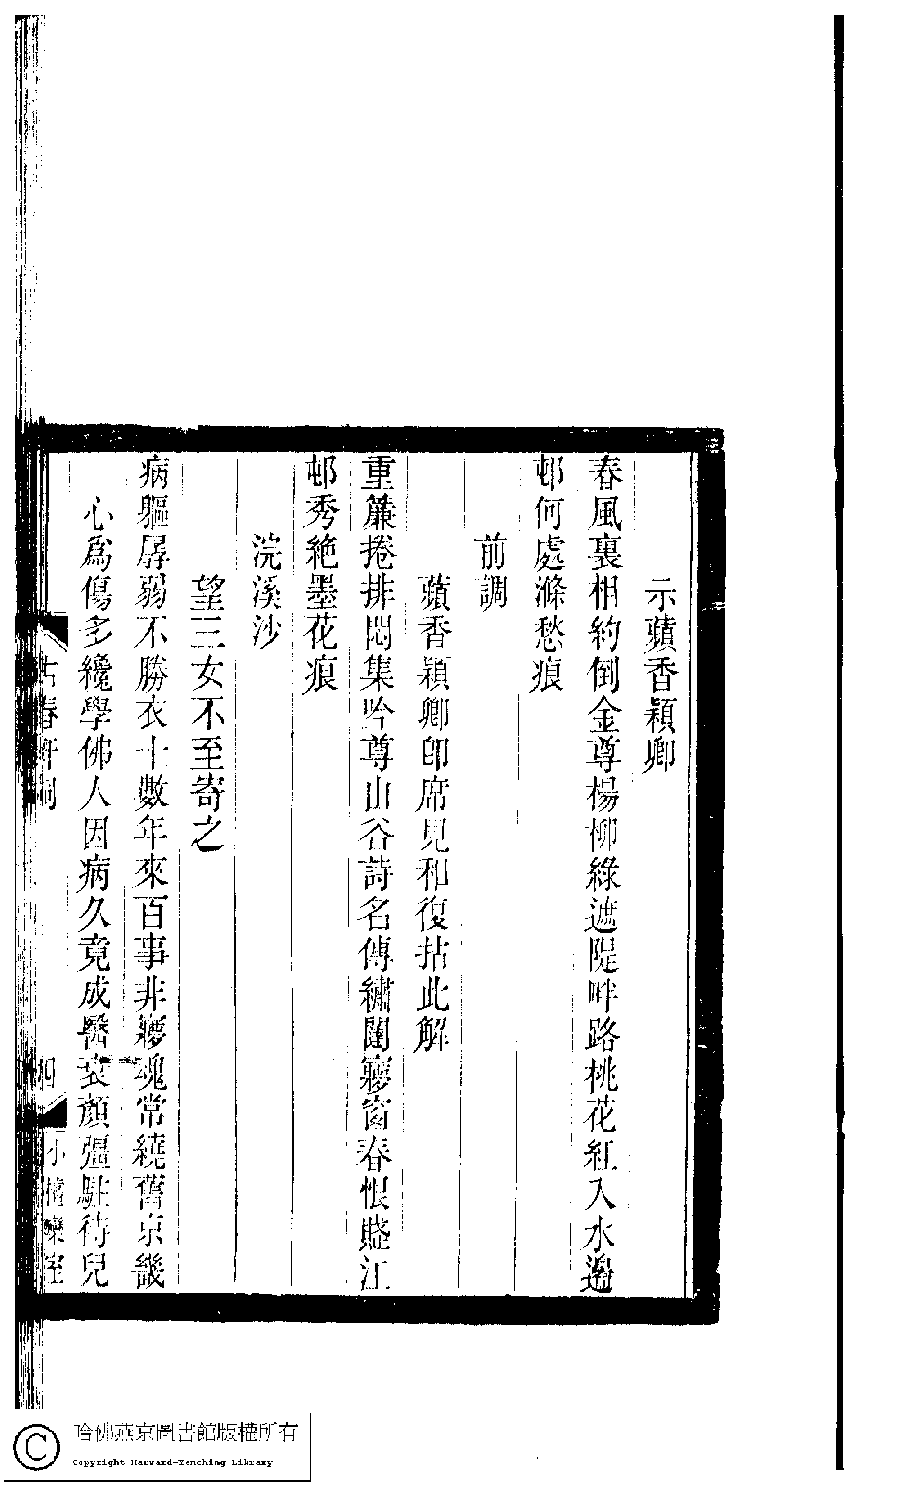 示蘋香穎卿
春風裏相約倒金尊楊柳綠遮隄畔路桃花紅入水邊
邨何處滌愁痕
前調
蘋香穎卿卽席見和復拈此解
重簾捲排悶集吟尊山谷詩名傳繡闥寥窗春恨賸江
邨秀絶墨花痕
浣溪沙
望三女不至寄之
病軀孱弱不勝衣十數年來百事非夢魂常繞舊京畿
心爲傷多纔學佛人因病久竟成醫衰顏彊駐待兒
古春軒詞
四
小檀欒室
哈佛燕京圖書館版權所有
Copyright Harvard-Yenching Library